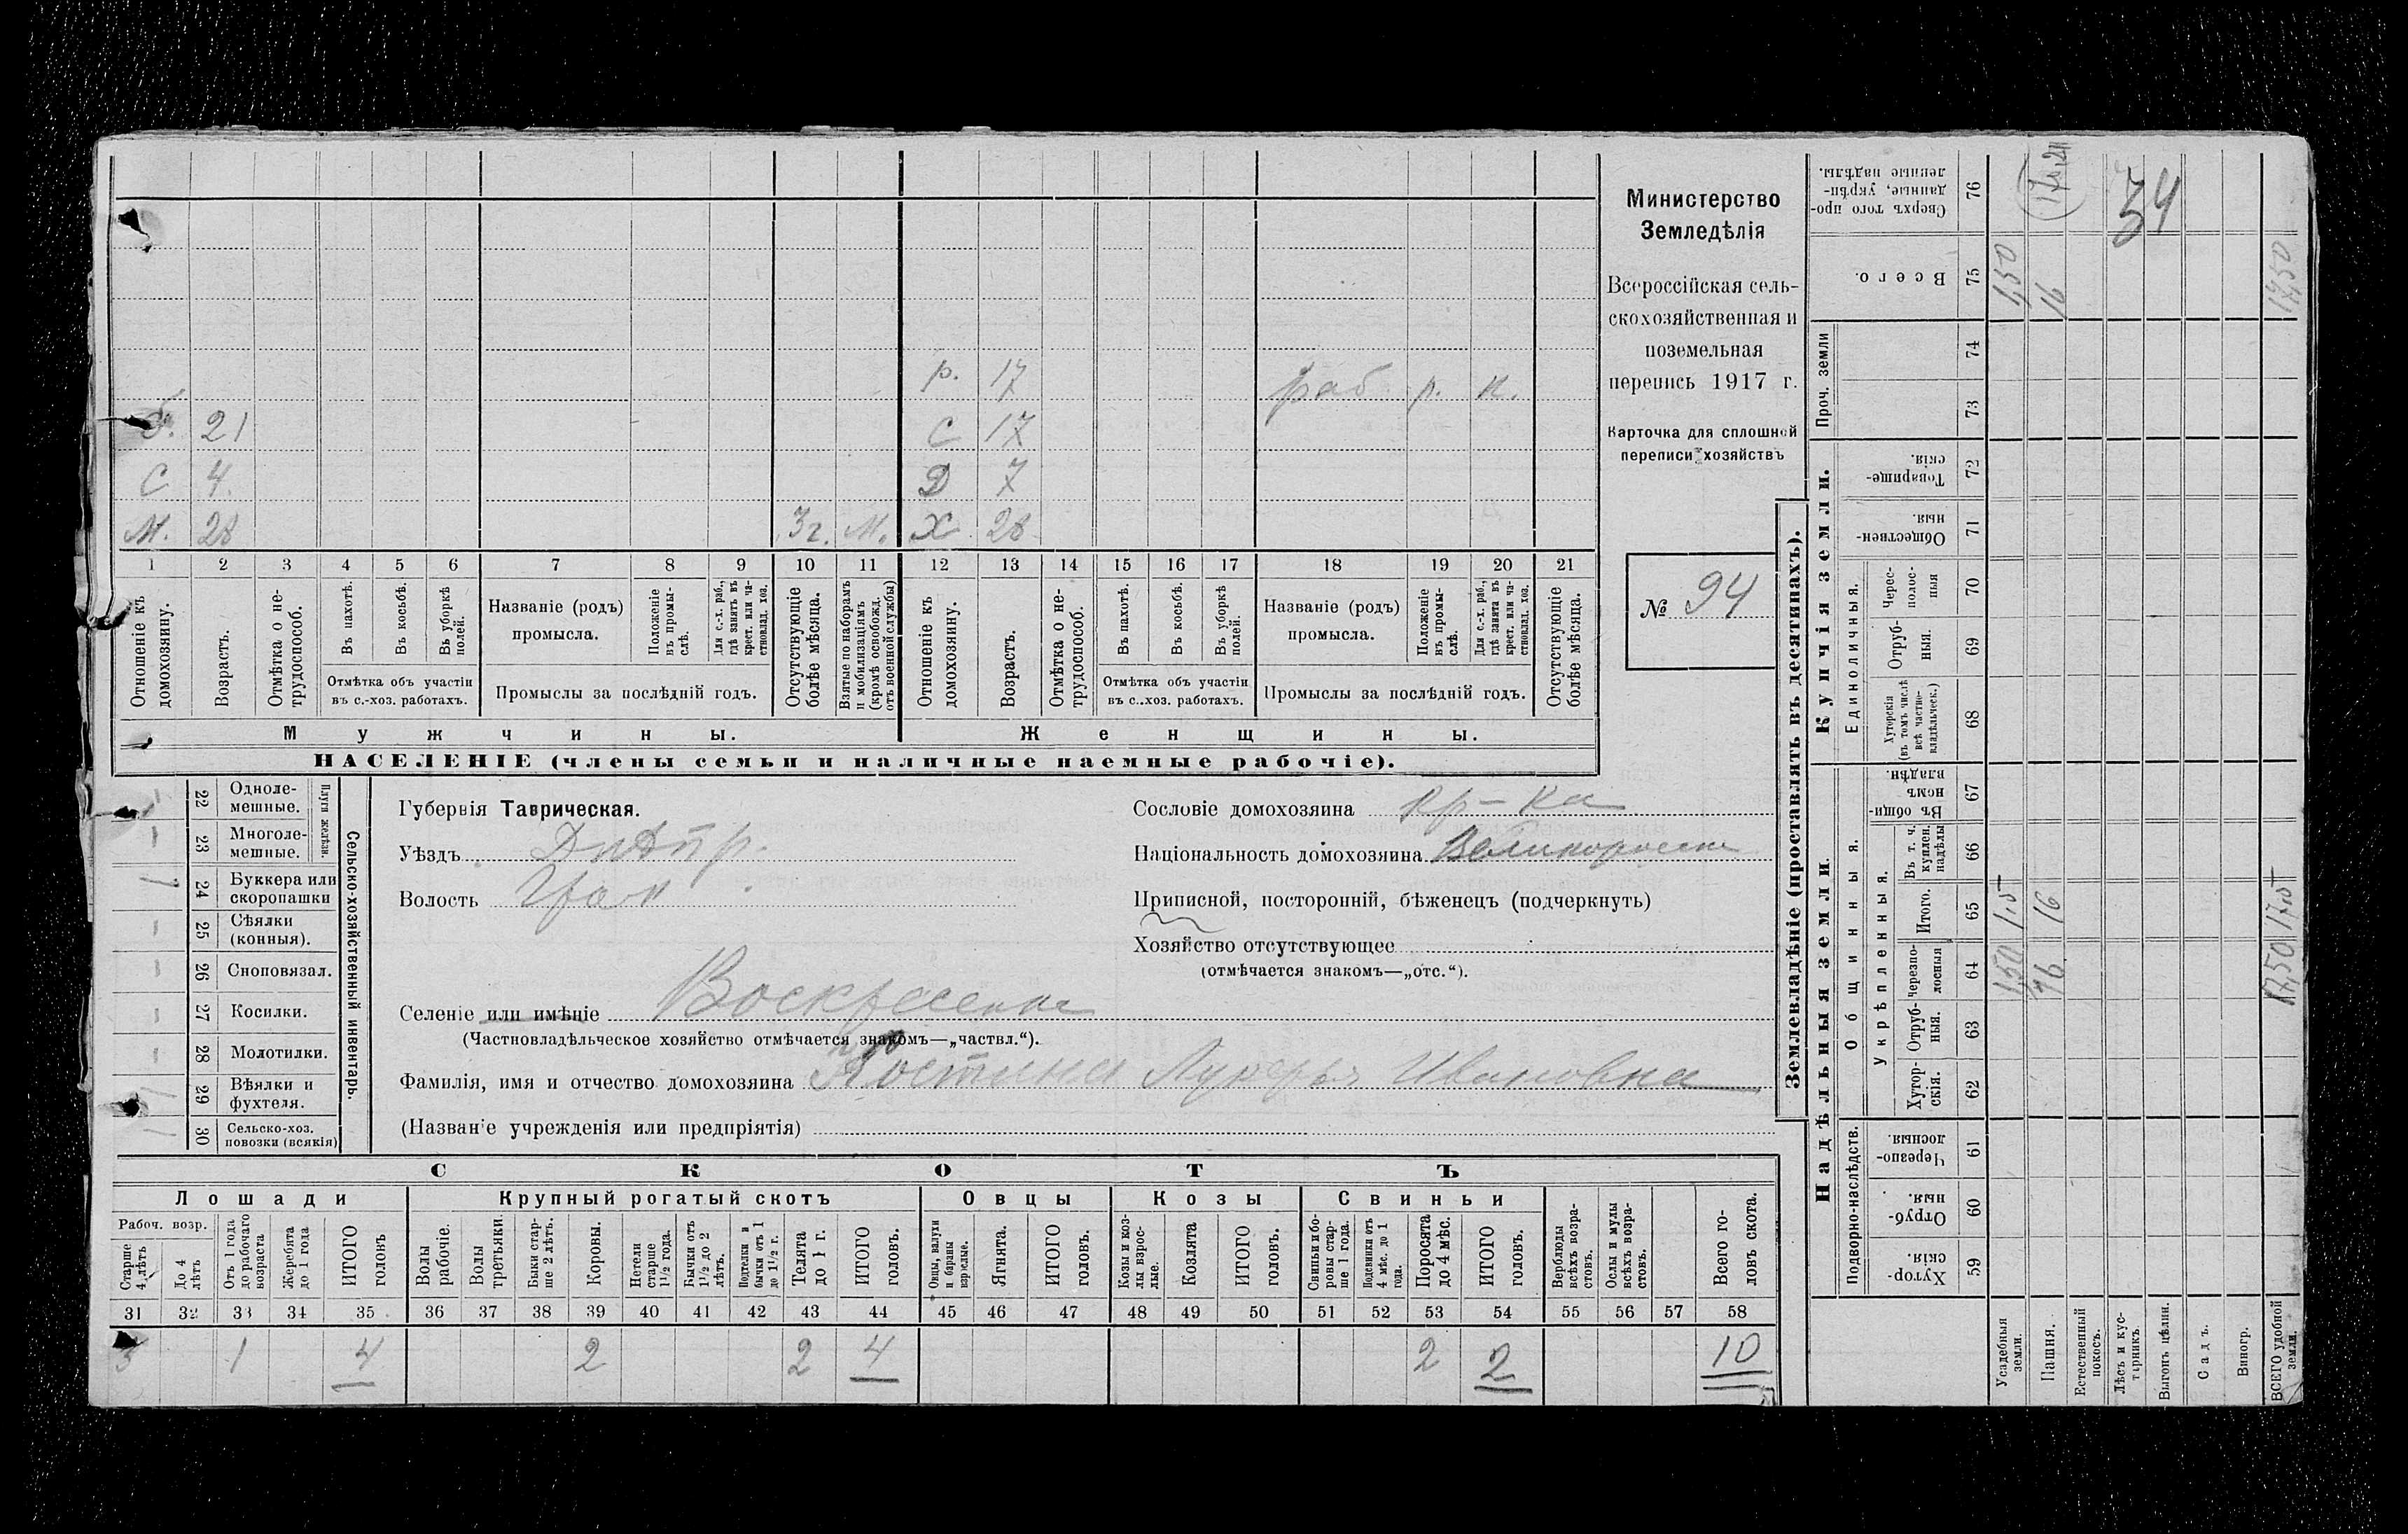 Министерство
Земледѣлія
Всероссійская сель-
скохозяйственная и
поземельная
перепись 1917 г.
Карточка для сплошной
переписи хозяйствъ
№ 94
р. 17 раб р. к.
б. 21 С 17
С 4. Д 7
М. 28 3 г. М. Х 28
1 2 3 4 5 6 7 8 9 10 11 12 13 14 15 16 17 18 19 20 21
Отношеніе къ домохозяину.
Возрастъ.
Отмѣтка о не-трудоспособ.
Въ пахотѣ.
Въ косьбѣ.
Въ уборкѣ полей.
Отмѣтка объ участіи
въ с.-хоз. работахъ.
Названіе (родъ)
промысла.
Положеніе въ промы-слѣ.
Для с.-х. раб., гдѣ занятъ въ крест. или ча-стновлад. хоз.
Промыслы за послѣдній годъ.
Отсутствующіе болѣе мѣсяца.
Взятые по наборамъ и мобилизаціямъ (кромѣ освобожд. отъ военной службы)
Отношеніе къ домохозяину.
Возрастъ.
Отмѣтка о не-трудоспособ.
Въ пахотѣ.
Въ косьбѣ.
Въ уборкѣ полей.
Отмѣтка объ участіи
въ с..хоз. работахъ.
Названіе (родъ)
промысла.
Положеніе въ промы-слѣ.
Для с.-х. раб., гдѣ занята въ крест. или ча-стновлад. хоз.
Промыслы за послѣдній годъ.
Отсутствующіе болѣе мѣсяца.
Мужчины. Женщины.
НАСЕЛЕНІЕ (члены семьи и наличные наемные рабочіе).
Сельско-хозяйственный инвентарь.
Плуги желѣзн.
22 Одноле-мешные. –
23 Многоле-мешные. –
24 Буккера или скоропашки 1
25 Сѣялки (конныя). –
26 Сноповязал. –
27 Косилки. –
28 Молотилки. –
29 Вѣялки и фухтеля.
30 Сельско-хоз. повозки (всякія)
Губернія Таврическая.
Уѣздъ Днѣпр.
Волость
Селеніе или имѣніе Воскресенка
(Частновладѣльческое хозяйство отмѣчается знакомъ—„частвл.“).
Фамилія, имя и отчество домохозяина Лукерья Ивановна
(Названіе учрежденія или предпріятія)
Сословіе домохозяина кр-ка
Національность домохозяина Великоросска
Приписной, посторонній, бѣженецъ (подчеркнуть)
Хозяйство отсутствующее
(отмѣчается знакомъ—„отс.“).
СКОТЪ
Лошади Крупный рогатый скотъ Овцы Козы Свиньи
Рабоч. возр.
Старше 4 лѣтъ
До 4 лѣтъ
Отъ 1 года до рабочаго возраста
Жеребята до 1 года
ИТОГО головъ
Волы рабочіе.
Волы третьяки.
Быки стар-ше 2 лѣтъ.
Коровы.
Нетели старше 1½ года.
Бычки отъ 1½ до 2 лѣтъ.
Подтелки и бычки отъ 1 до 1½ г.
Телята до 1 г.
ИТОГО головъ.
Овцы, валухи и бараны взрослые.
Ягнята.
ИТОГО головъ.
Козы и коз-лы взрос-лые.
Козлята
ИТОГО головъ.
Свиньи и бо-ровы стар-ше 1 года.
Подсвинки отъ 4 мѣс. до 1 года.
Поросята до 4 мѣс.
ИТОГО головъ.
Верблюды всѣхъ возра-стовъ.
Ослы и мулы всѣхъ возра-стовъ.
Всего го-ловъ скота.
31 32 33 34 35 36 37 38 39 40 41 42 43 44 45 46 47 48 49 50 51 52 53 54 55 56 57 58
3 1 4 2 2 4 2 2 10
Землевладѣніе (проставлять въ десятинахъ).
Купчія земли.
Надѣльныя земли
Сверхъ того про-данные, укрѣп-ленные надѣлы. 76 34
Всего. 75 1,50 16 17,50
Проч. земли 74 73
Товарище-скія. 72
Обществен-ныя. 71
Единоличныя.
Черес-полос-ныя 70
Отруб-ныя. 69
Хуторскія (въ томъ числѣ всѣ частно-владѣльческ.) 68
Общинныя.
Въ общи-номъ владѣн. 67
Укрѣпленныя.
Въ т. ч. куплен. надѣлы 66
Итого. 65 1,5 16 17,5
Черезпо-лосныя 64 1,50 16 17,50
Отруб-ныя. 63
Хутор-скія. 62
Подворно-наслѣдств.
Черезпо-лосныя. 61
Отруб-ныя. 60
Хутор-скія. 59
Усадебныя земли.
Пашня.
Естественный покосъ.
Лѣсъ и кус-тарникъ.
Выгонъ цѣлин.
Садъ.
Виногр.
ВСЕГО удобной земли.